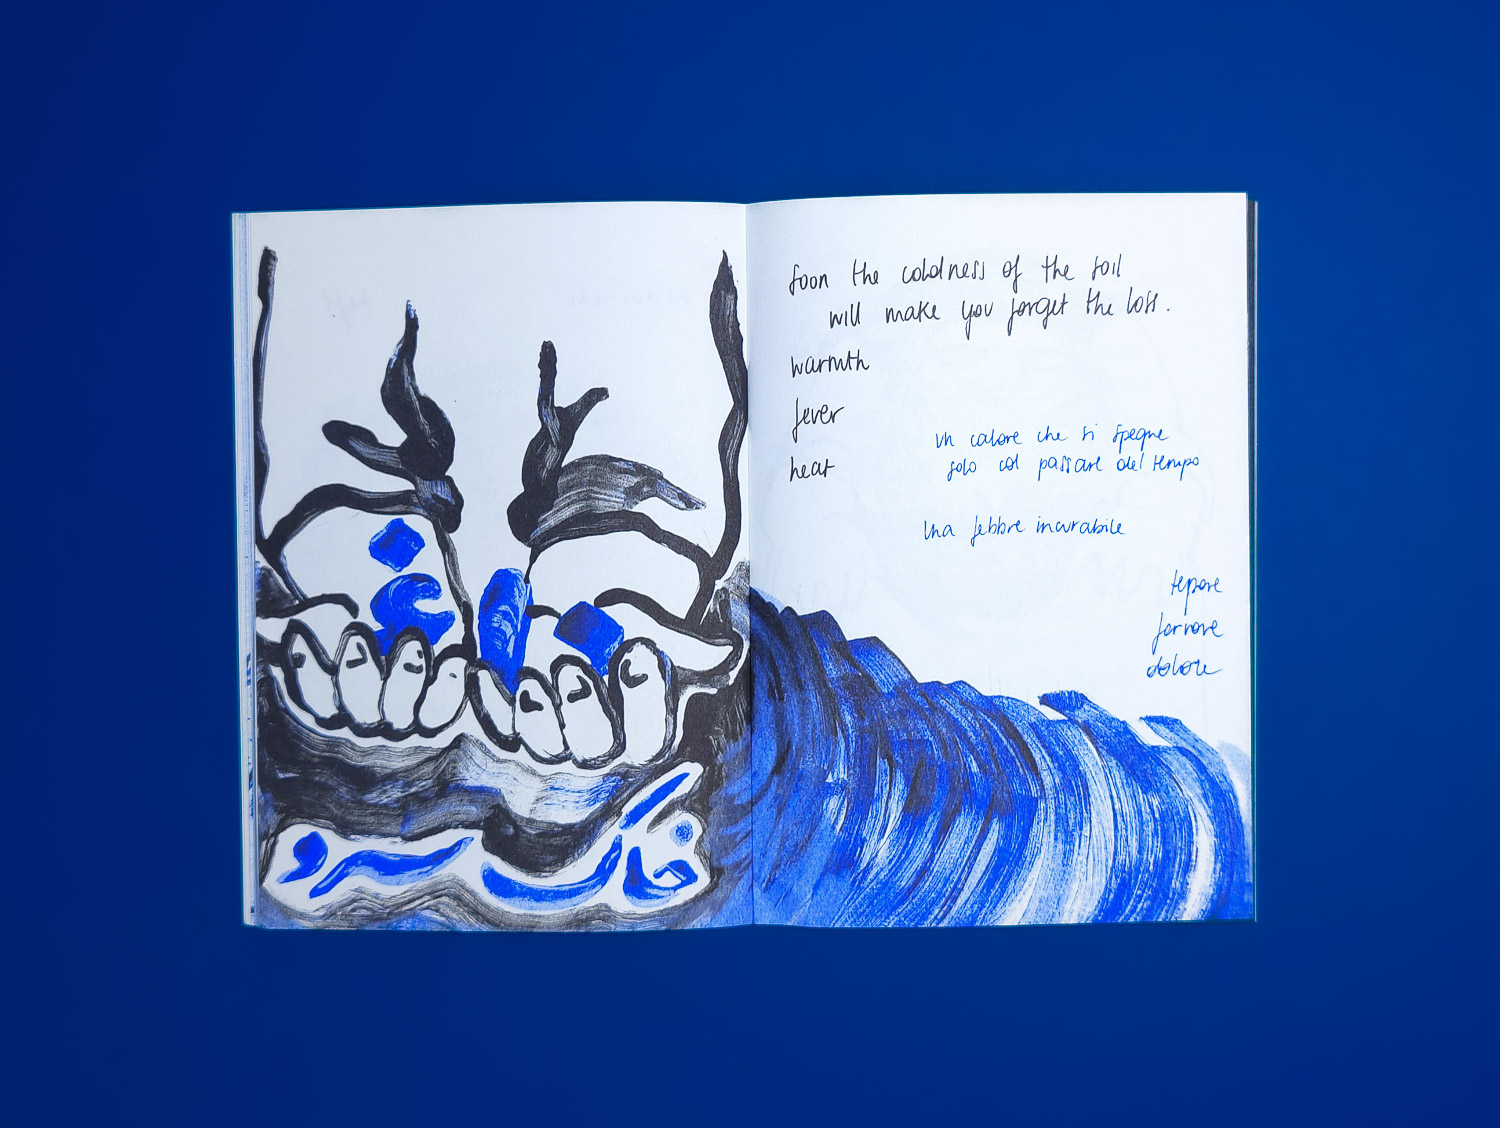 خاک سرد
Soon the coldness of the soil
will make you forget the loss.
warmth
fever
heat
un calore che si spegne
solo col passare del tempo
una febbre incurabile
tepore
fervore
dolore